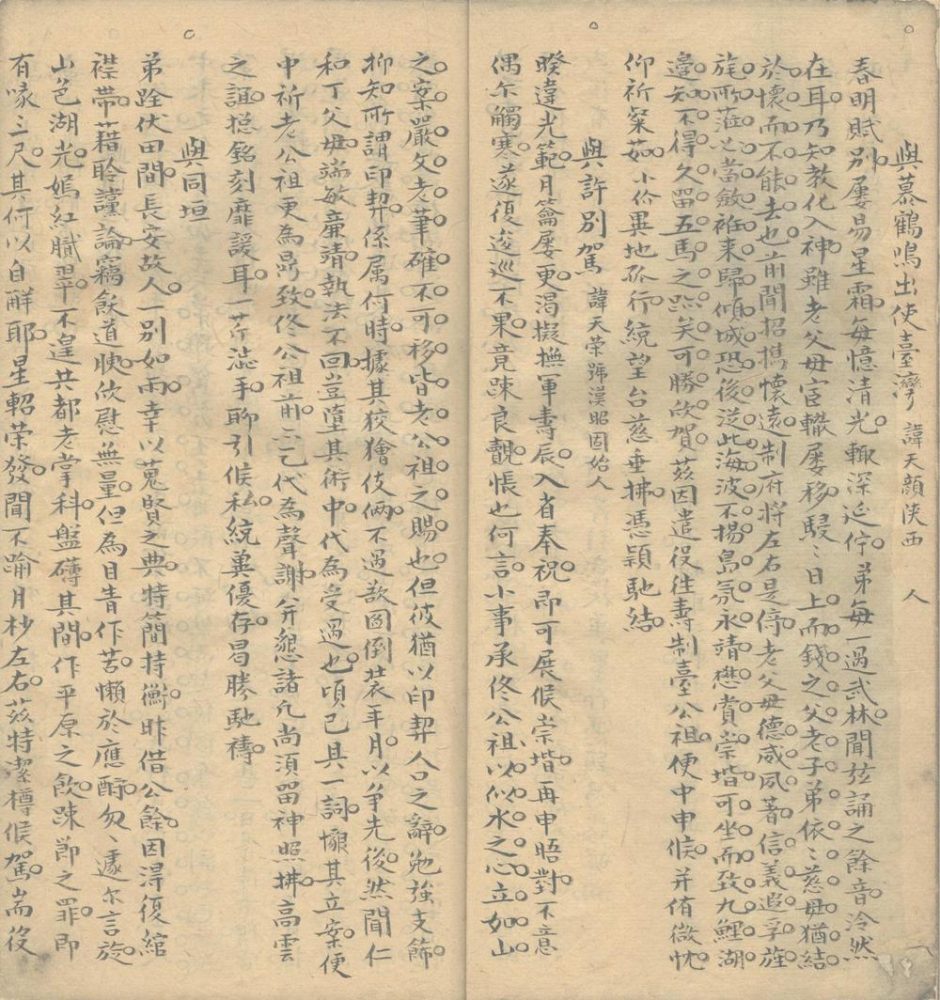 與慕鶴鳴出使臺灣 諱天顏陝西 人
春明賦別屢易星霜每憶清光輒深延佇弟每一過武林聞弦誦之餘音泠然
在耳乃知教化入神雖老父母宦轍屢移駸〻日上而錢之父老子弟依〻慈母猶結
於懷而不能去也前聞招攜懷遠制府將左右是停老父母德威夙著信義遐孚旌
旄所涖之當斂袵來歸傾城恐後從此海波不揚島氛永靖懋賞崇堦可坐而致九鯉湖
邊知不得久留五馬之跡矣可勝欣賀茲因遣役往壽制臺公祖便中申候并侑微忱
仰祈粲茹小伻異地孤行統望台慈垂拂憑穎馳結
與許別駕 諱天榮號漢昭固始人
暌違光範月籥屢更渴擬撫軍壽辰入省奉祝即可展候崇堦再申晤對不意
偶尔觸寒遂復逡巡不果竟踈良覿悵也何言小事承佟公祖以似水之心立如山
之案嚴文老筆確不可移皆老公祖之賜也但彼猶以印契人口之辭勉強支飾
抑知所謂印契係属何時據其狡獪伎倆不過欺圖倒裝年月以爭先後然聞仁
和丁父母端敏廉請執法不回豈墮其術中代為受過也頃已具一詞懇其立案便
中祈老公祖更為昻致佟公祖前亦乞代為聲謝并懇諸凡尚須留神照拂高雲
之誼摁銘刻靡諼耳一芹澁手聊引候私統冀優存曷勝馳禱
與同垣
弟跧伏田間長安故人一別如雨幸以蒐賢之典特簡持衡昨借公餘因淂復綰
襟帶藉聆讜論竊飫道腴欣慰無量但為目眚作苦懶於應酧勿遽尔言旋
山色湖光嫣紅膩翠不遑共都老掌科盤礴其間作平原之飲踈節之罪即
有喙三尺其何以自觧耶星軺荣發聞不踰月杪左右茲特潔樽候駕耑役